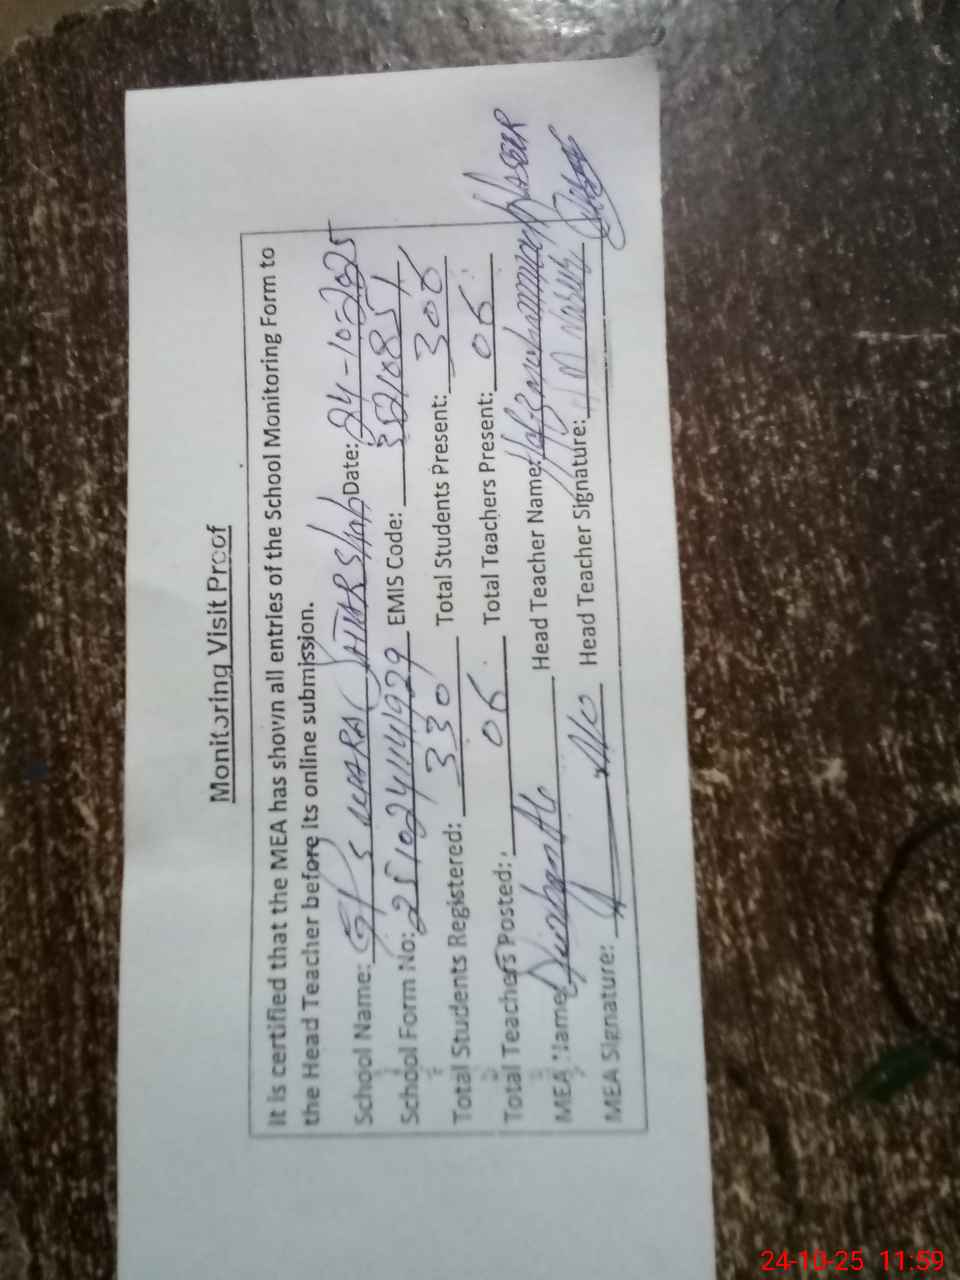 Monitoring Visit Proof
It is certified that the MEA has shown all entries of the School Monitoring Form to
the Head Teacher before its online submission.
School Name: GPS Date: 24-10-2025
School Form No: EMIS Code: 35210851
Total Students Registered: 330 Total Students Present: 306
Total Teachers Posted: 06 Total Teachers Present: 06
MEA Name: Head Teacher Name: Hafiz Muhammad Naseer
MEA Signature: Head Teacher Signature: M Naseer
24-10-25 11:59